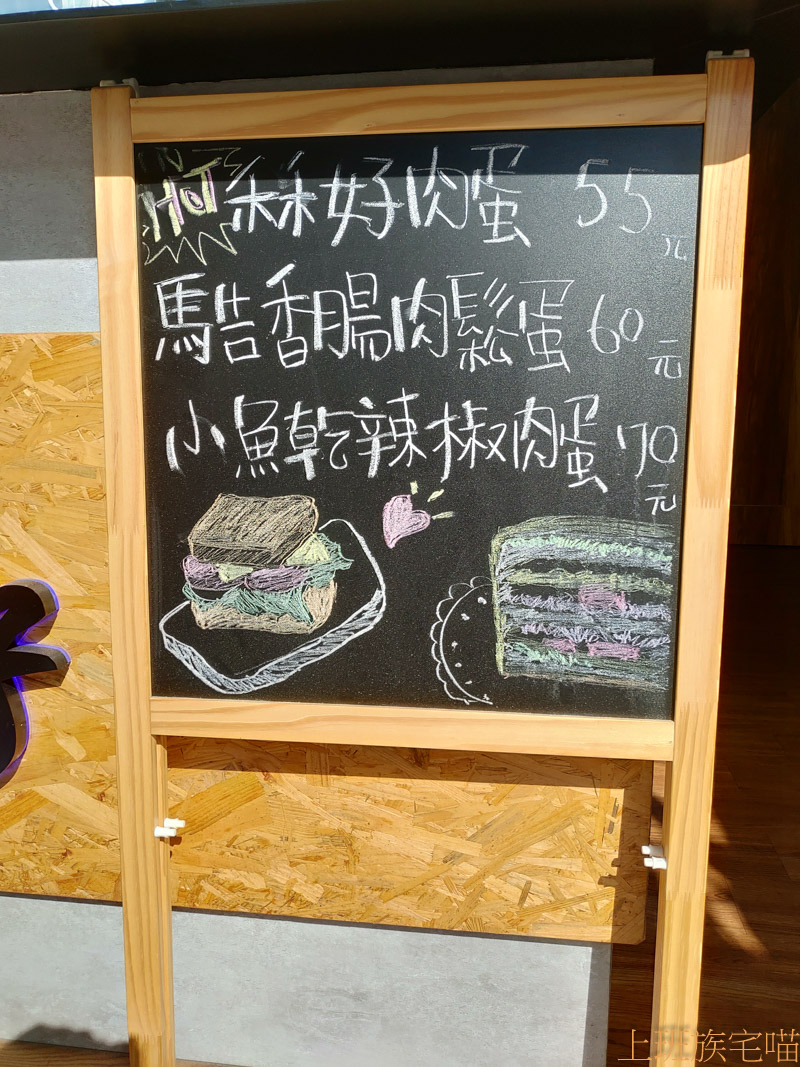 HOT 絲絲好肉蛋 55元
馬告香腸肉鬆蛋 60元
小魚乾辣椒肉蛋 70元
上班族宅喵